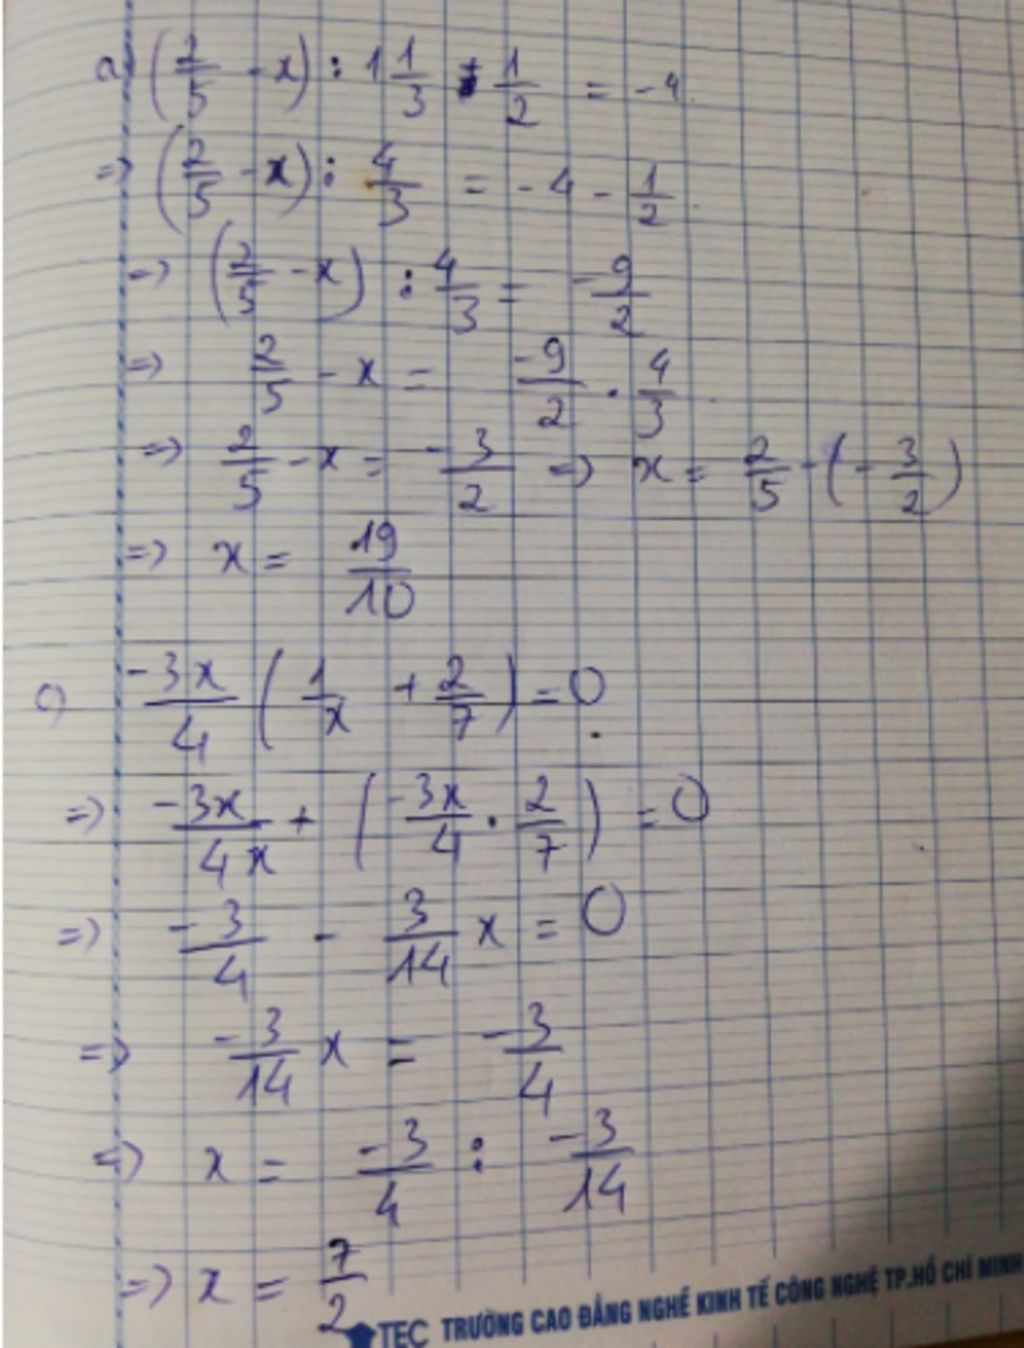 a) (2/5 - x) : 1 1/3 + 1/2 = -4
=> (2/5 - x) : 4/3 = -4 - 1/2
=> (2/5 - x) : 4/3 = -9/2
=> 2/5 - x = -9/2 . 4/3
=> 2/5 - x = -3/2 => x = 2/5 - (-3/2)
=> x = 19/10
c) -3x/4 (1/x + 2/7) = 0
=> -3x/4x + (-3x/4 . 2/7) = 0
=> -3/4 - 3/14 x = 0
=> -3/14 x = -3/4
=> x = -3/4 : -3/14
=> x = 7/2
TEC TRƯỜNG CAO ĐẲNG NGHỀ KINH TẾ CÔNG NGHỆ TP.HỒ CHÍ MINH